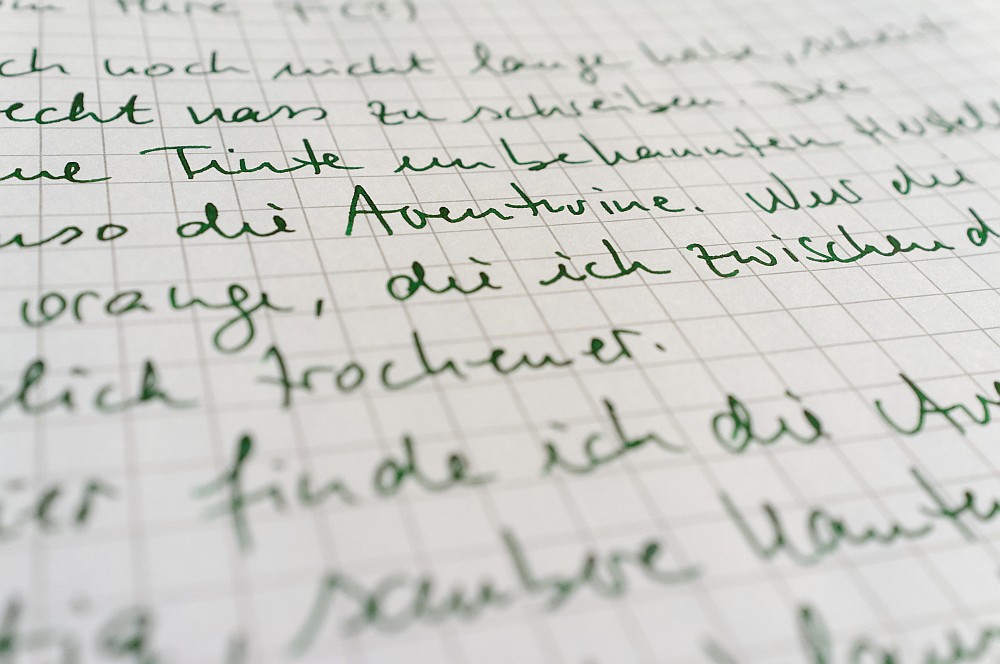 ch noch nicht lange habe, scheint
echt nass zu schreiben. Die
ne Tinte unbekannten Herstell
uso die Aventurine. Nur die
orange, die ich zwischend
lich trockener.
ier finde ich die Av
tig, saubere Kanten